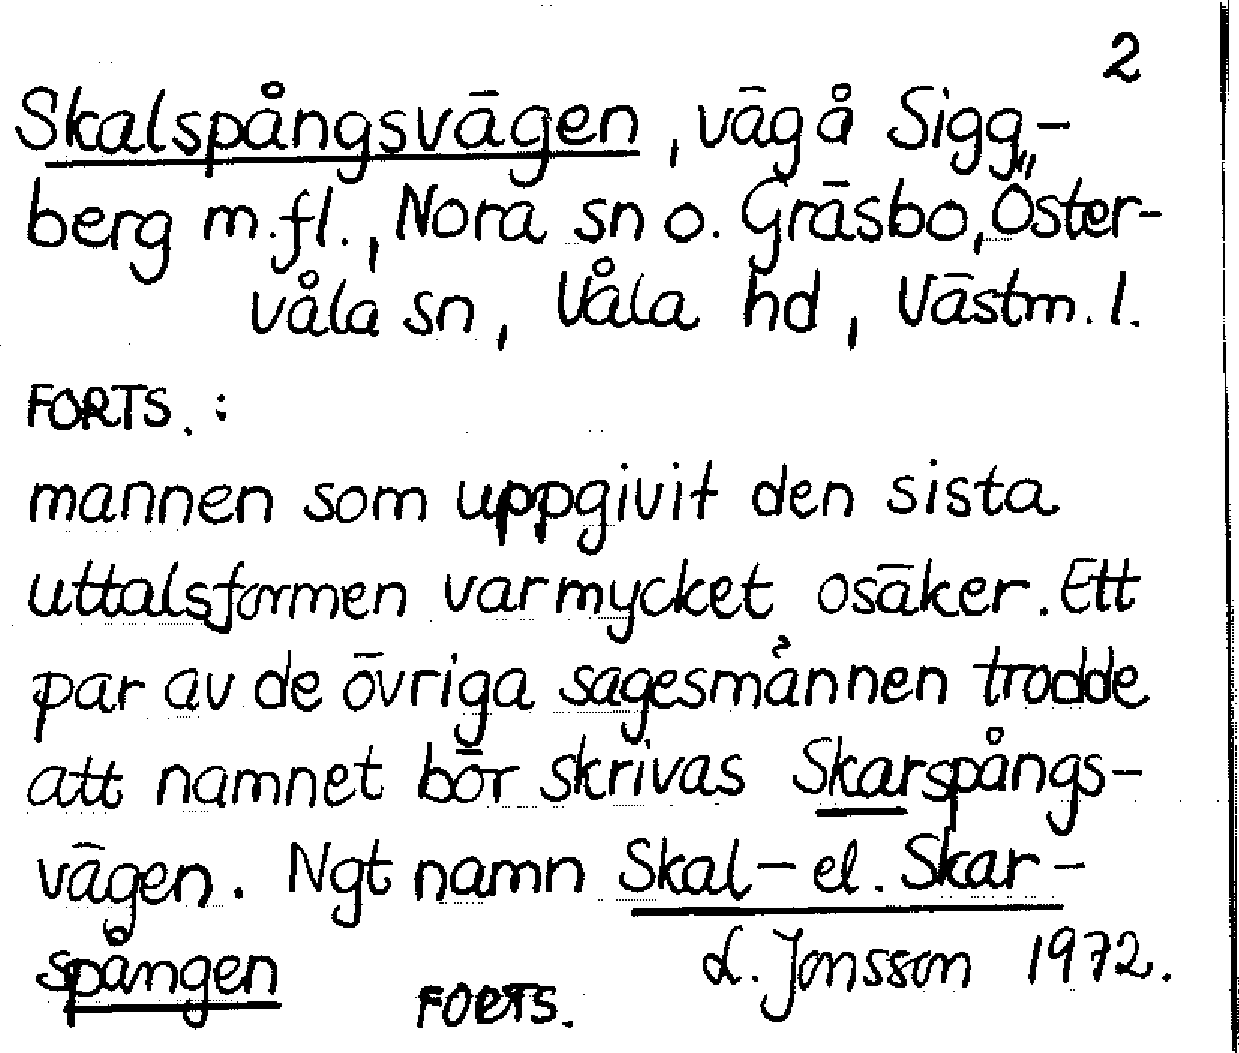 2
Skalspångsvägen, väg å Sigg-
berg m.fl., Nora sn o. Gräsbo, Öster-
våla sn, Våla hd, Västm. l.
FORTS. :
mannen som uppgivit den sista
uttalsformen var mycket osäker. Ett
par av de övriga sagesmännen trodde
att namnet bör skrivas Skarspångs-
vägen. Ngt namn Skal- el. Skar-
spången
L. Jonsson 1972.
FORTS.